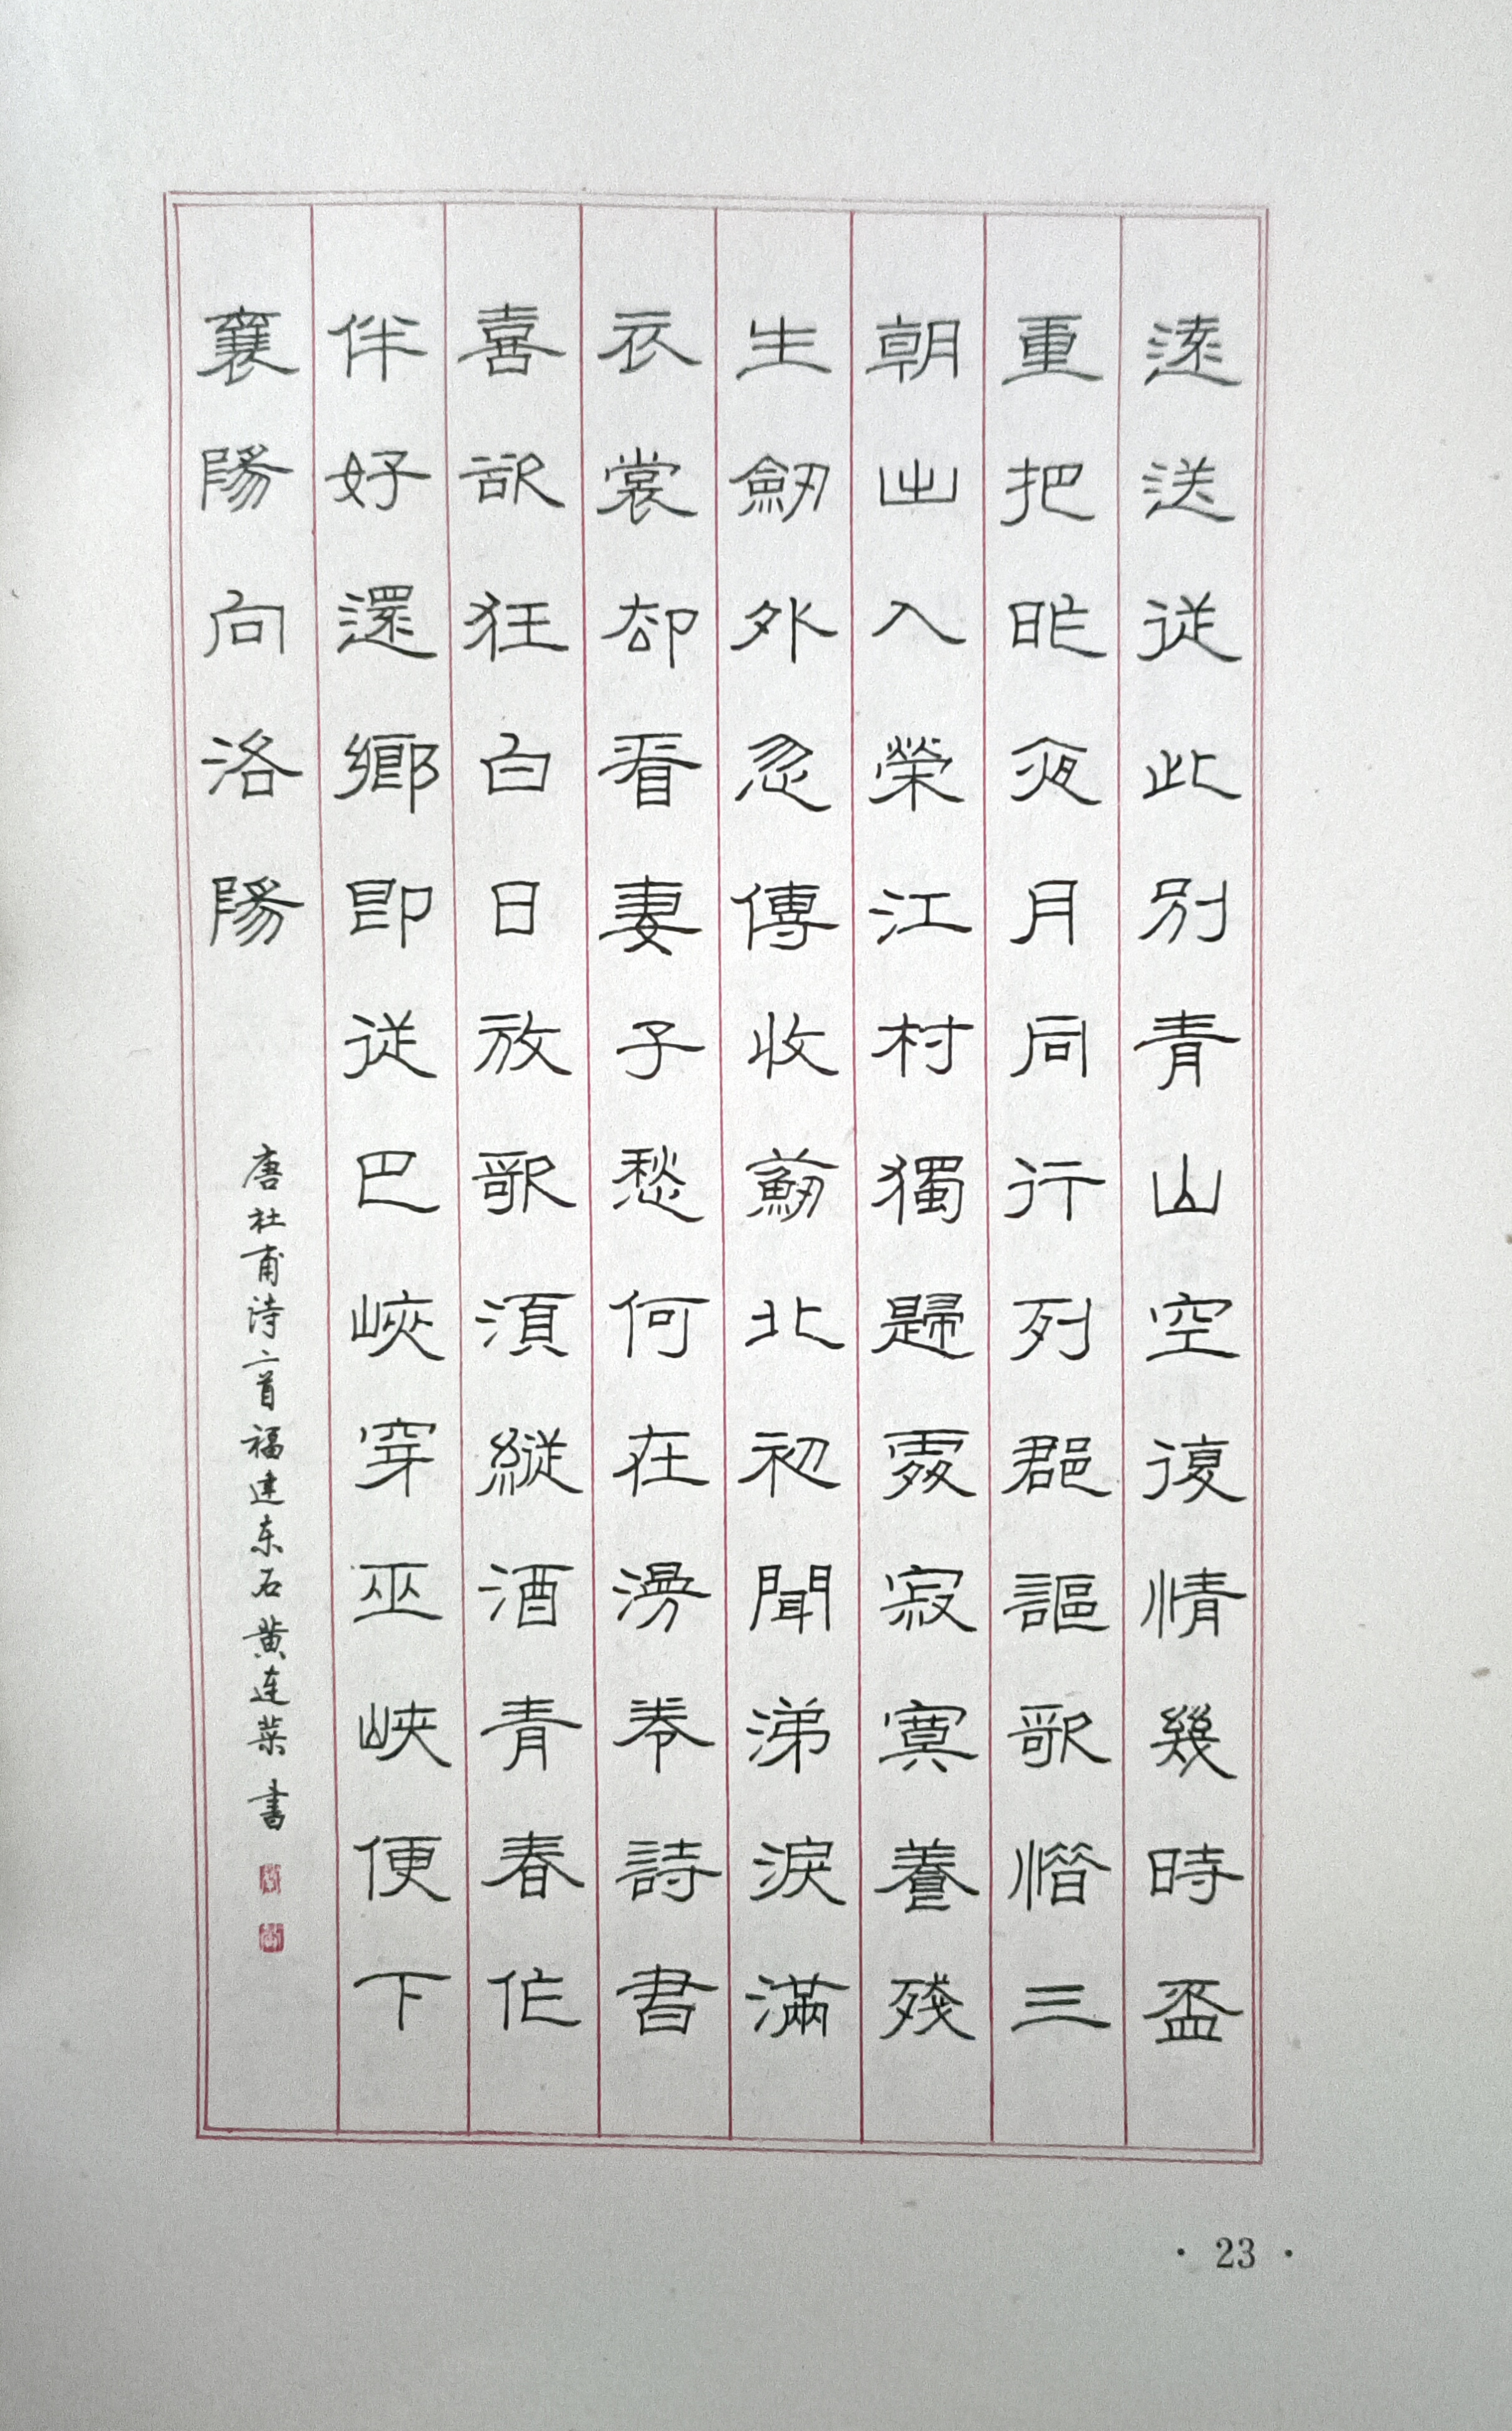 遠送從此別青山空復情幾時盃
重把昨夜月同行列郡謳歌惜三
朝出入榮江村獨歸處寂寞養殘
生劒外忽傳收薊北初聞涕淚滿
衣裳却看妻子愁何在漫卷詩書
喜欲狂白日放歌須縱酒青春作
伴好還鄉即從巴峽穿巫峽便下
襄陽向洛陽
唐杜甫诗二首福建东石黄连菜书
· 23 ·